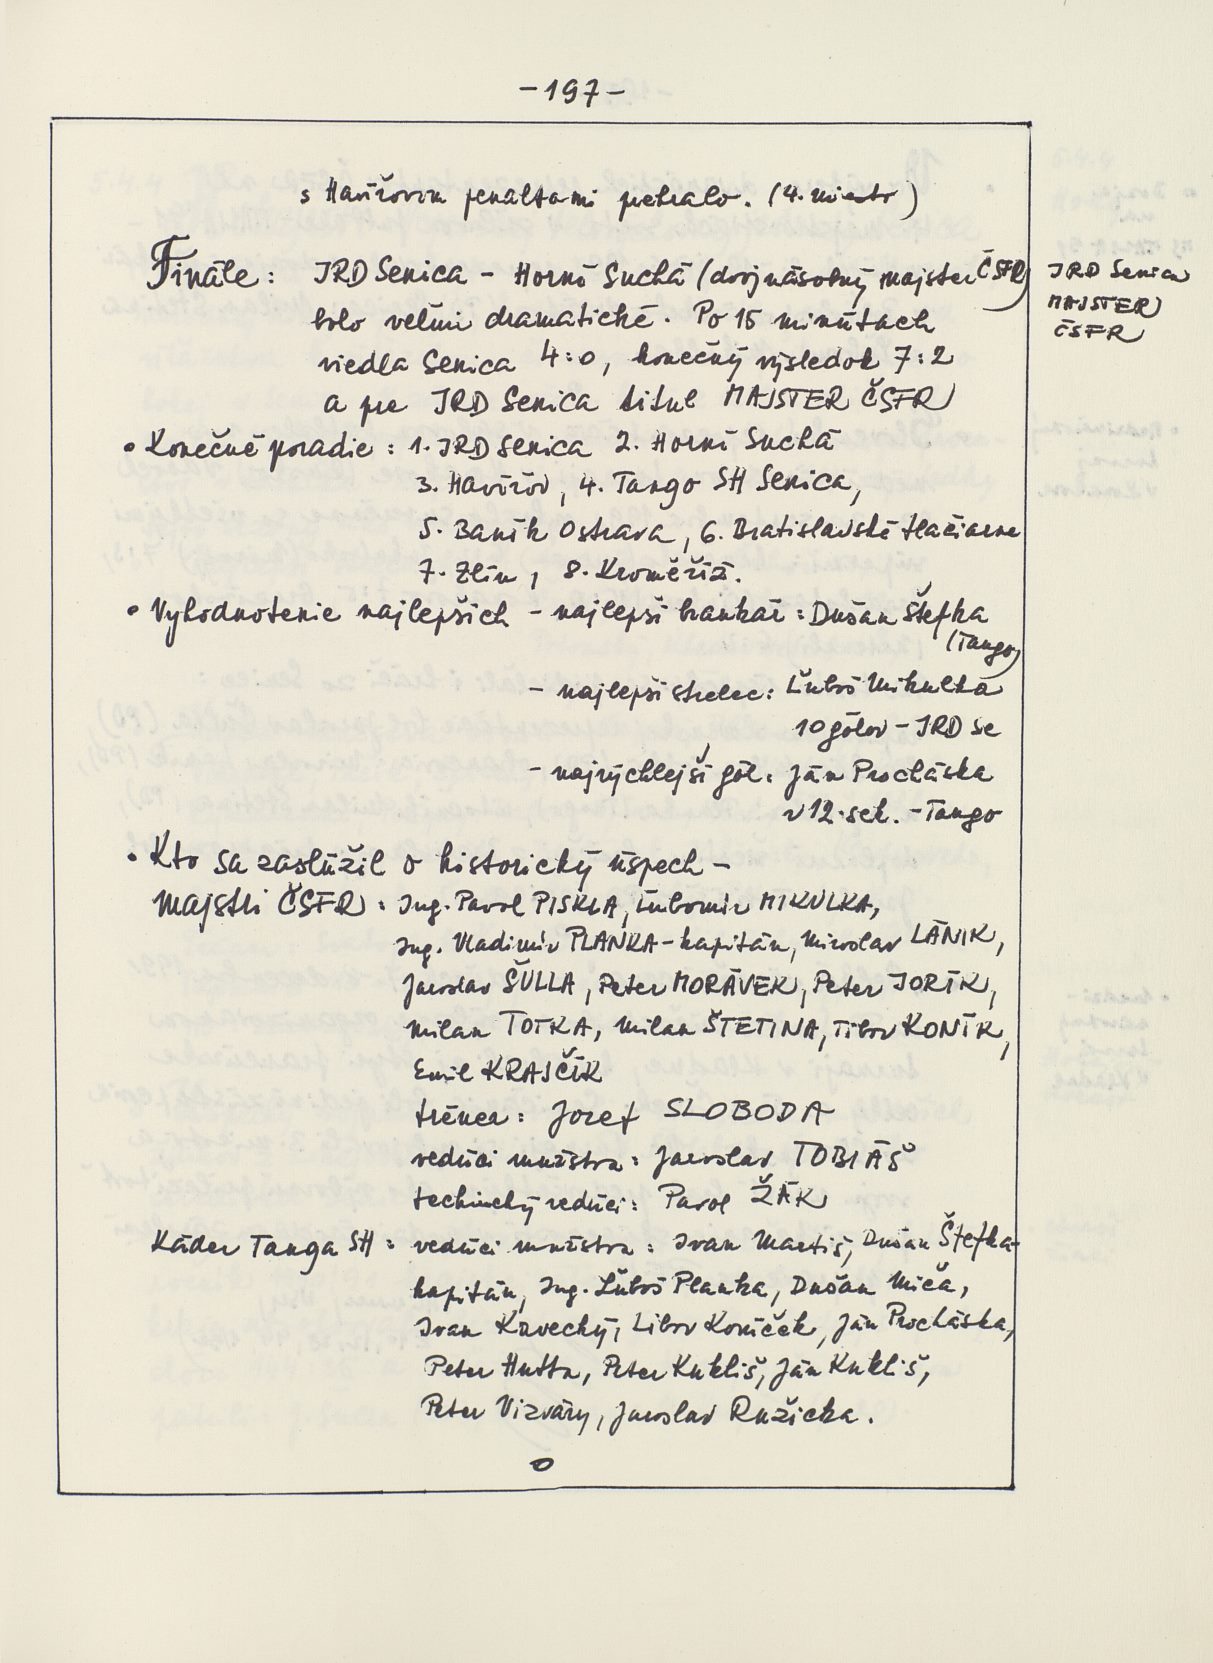 -197-
s Havířovom penaltami prehralo. (4. miesto)
Finále: JRD Senica - Horní Suchá (dvojnásobný majster ČSFR)
bolo veľmi dramatické. Po 15 minútach
viedla Senica 4:0, konečný výsledok 7:2
a pre JRD Senica titul MAJSTER ČSFR
JRD Senica
MAJSTER
ČSFR
• Konečné poradie: 1. JRD Senica 2. Horní Suchá
3. Havířov, 4. Tango SH Senica,
5. Baník Ostrava, 6. Bratislavské tlačiarne
7. Zlín, 8. Kroměříž.
• Vyhodnotenie najlepších - najlepší brankár: Dušan Štefka
(Tango)
- najlepší strelec: Ľuboš Mikulka
10 gólov - JRD Se
- najrýchlejší gól: Ján Procháska
v 12. sek. - Tango
• Kto sa zaslúžil o historický úspech -
majstri ČSFR: Ing. Pavol PISKLA, Ľubomír MIKULKA,
Ing. Vladimír PLANKA - kapitán, Miroslav LÁNIK,
Jaroslav ŠULLA, Peter MORÁVEK, Peter JORÍK,
Milan TOTKA, Milan ŠTETINA, Tibor KONÍK,
Emil KRAJČÍK
tréner: Jozef SLOBODA
vedúci mužstva: Jaroslav TOBIÁŠ
technický vedúci: Pavol ŽÁK
Káder Tanga SH: vedúci mužstva: Ivan Martiš, Dušan Štefka-
kapitán, Ing. Ľuboš Planka, Dušan Miča,
Ivan Krvechý, Libor Koníček, Ján Procháska,
Peter Hutta, Peter Kukliš, Ján Kukliš,
Peter Vizváry, Jaroslav Ružička.